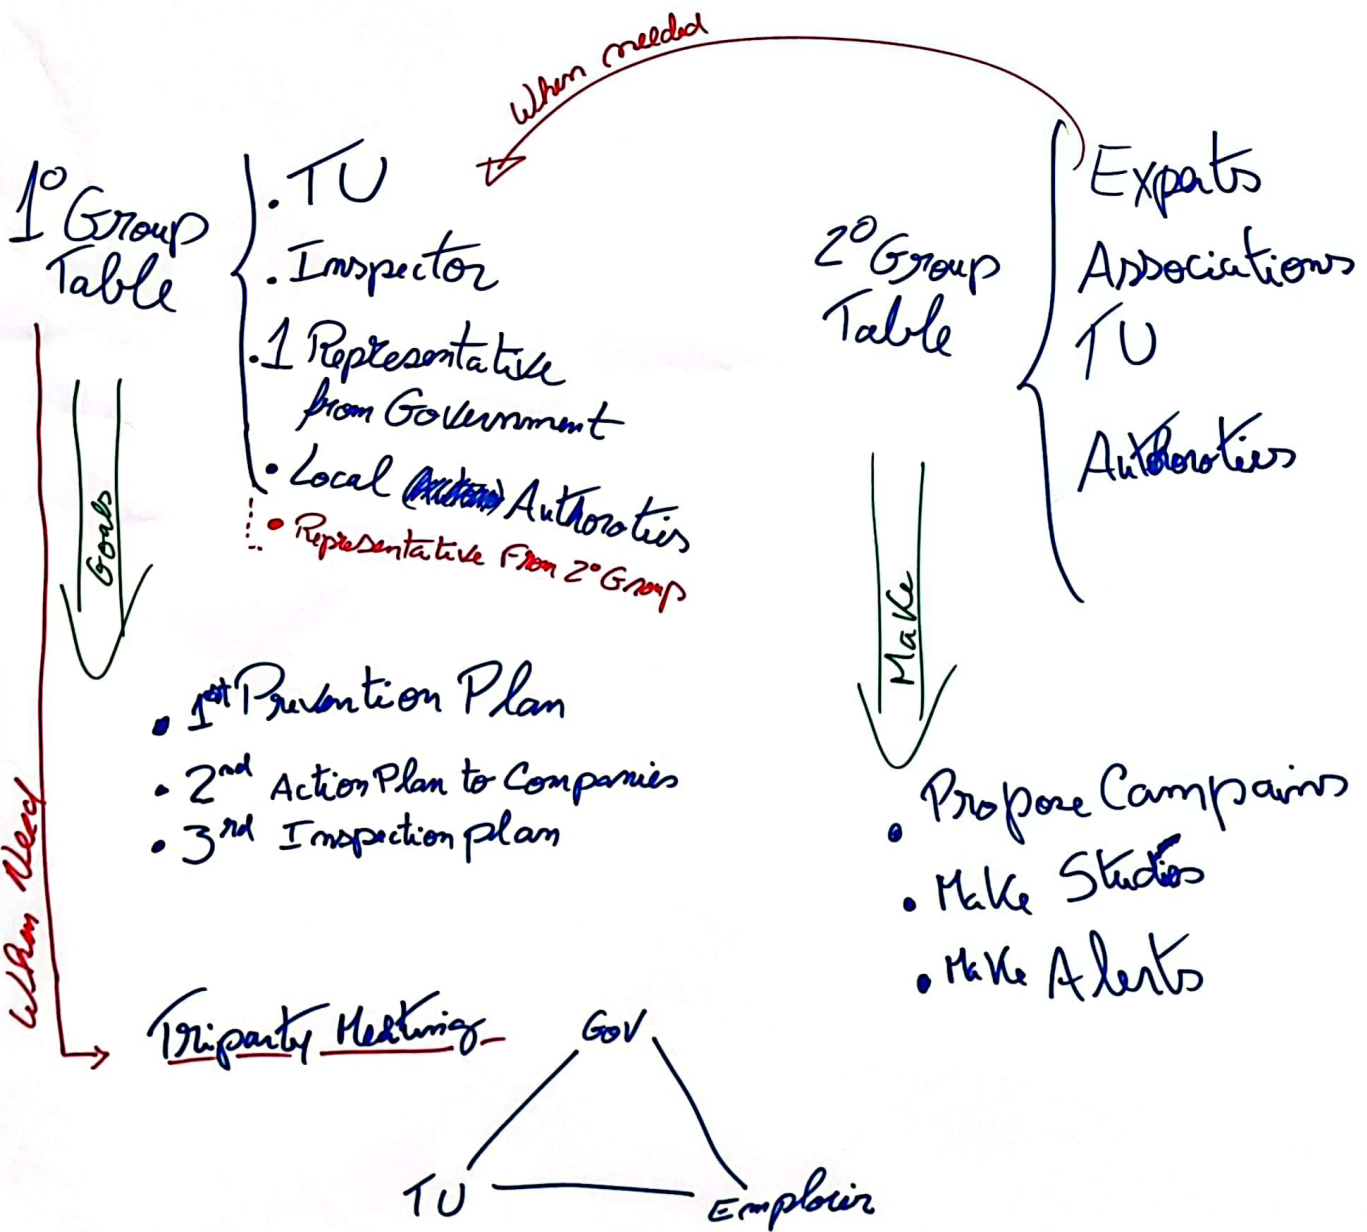 When needed
1º Group
Table
. TU
. Inspector
.1 Representative
from Government
. Local Authoroties
. Representative From 2º Group
Goals
. 1st Prevention Plan
. 2nd Action Plan to Companies
. 3rd Inspection plan
When Need
Triparty Meeting
Gov
TU
Emploier
2º Group
Table
Experts
Associations
TU
Authoroties
Make
. Propose Campains
. Make Studies
. Make Alerts